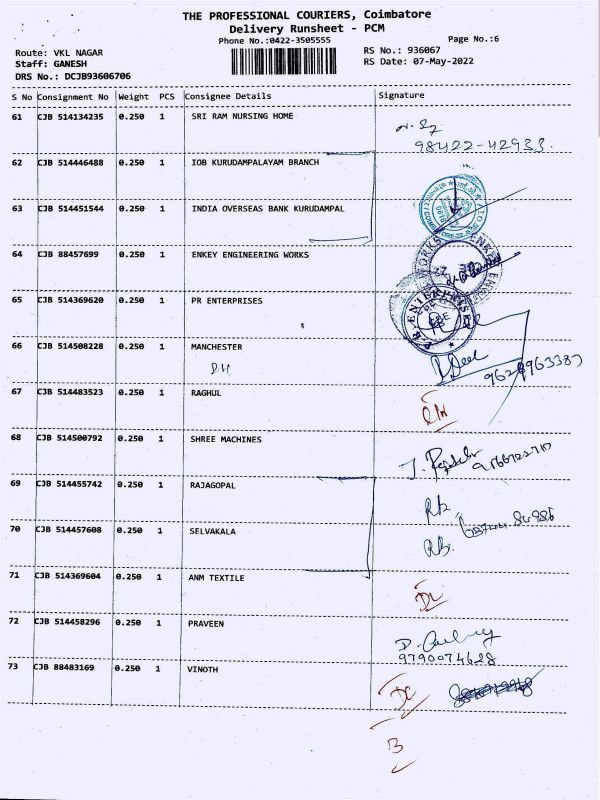 THE PROFESSIONAL COURIERS, Coimbatore
Delivery Runsheet - PCM
Phone No.:0422-3505555
Page No.:6
Route: VKL NAGAR
RS No.: 936067
Staff: GANESH
RS Date: 07-May-2022
DRS No.: DCJB93606706
S No Consignment No Weight PCS Consignee Details Signature
61 CJB 514134235 0.250 1 SRI RAM NURSING HOME
98422-42933
62 CJB 514446488 0.250 1 IOB KURUDAMPALAYAM BRANCH
63 CJB 514451544 0.250 1 INDIA OVERSEAS BANK KURUDAMPAL
64 CJB 88457699 0.250 1 ENKEY ENGINEERING WORKS
65 CJB 514369620 0.250 1 PR ENTERPRISES
66 CJB 514508228 0.250 1 MANCHESTER
67 CJB 514483523 0.250 1 RAGHUL
68 CJB 514500792 0.250 1 SHREE MACHINES
69 CJB 514455742 0.250 1 RAJAGOPAL
70 CJB 514457608 0.250 1 SELVAKALA
71 CJB 514369604 0.250 1 ANM TEXTILE
72 CJB 514458296 0.250 1 PRAVEEN
9790074628
73 CJB 88483169 0.250 1 VINOTH